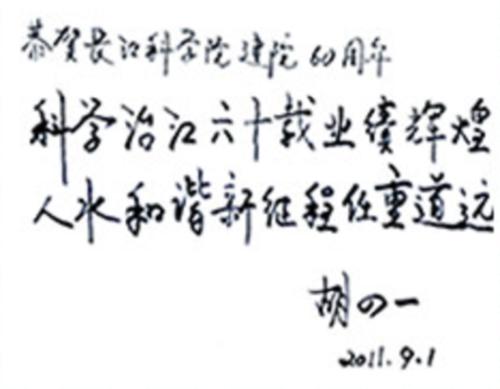 恭贺长江科学院建院60周年
科学治江六十载业绩辉煌
人水和谐新征程任重道远
胡四一
2011.9.1